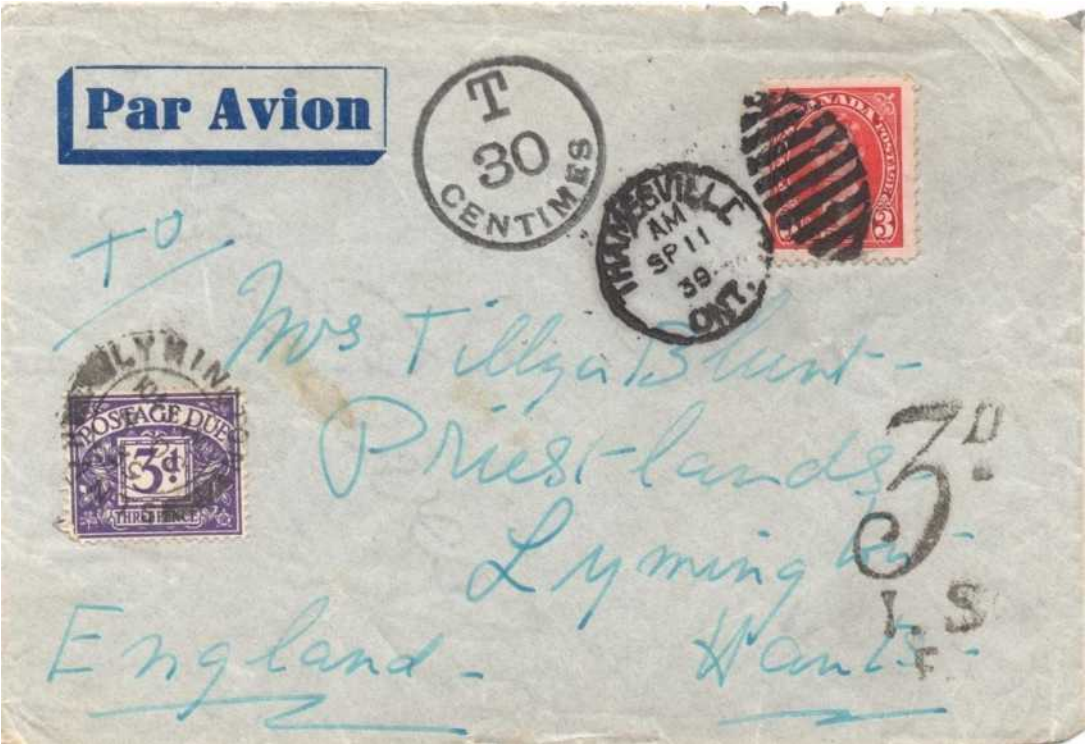 Par Avion
T
30
CENTIMES
CANADA POSTAGE
3
THAMESVILLE
AM
SP 11
39
ONT.
To
Mrs Tillyer Blunt-
Priestlands-
Lymington-
Hants-
England-
LYMINGTON
POSTAGE DUE
3d.
THREE PENCE
3D.
I. S
F.